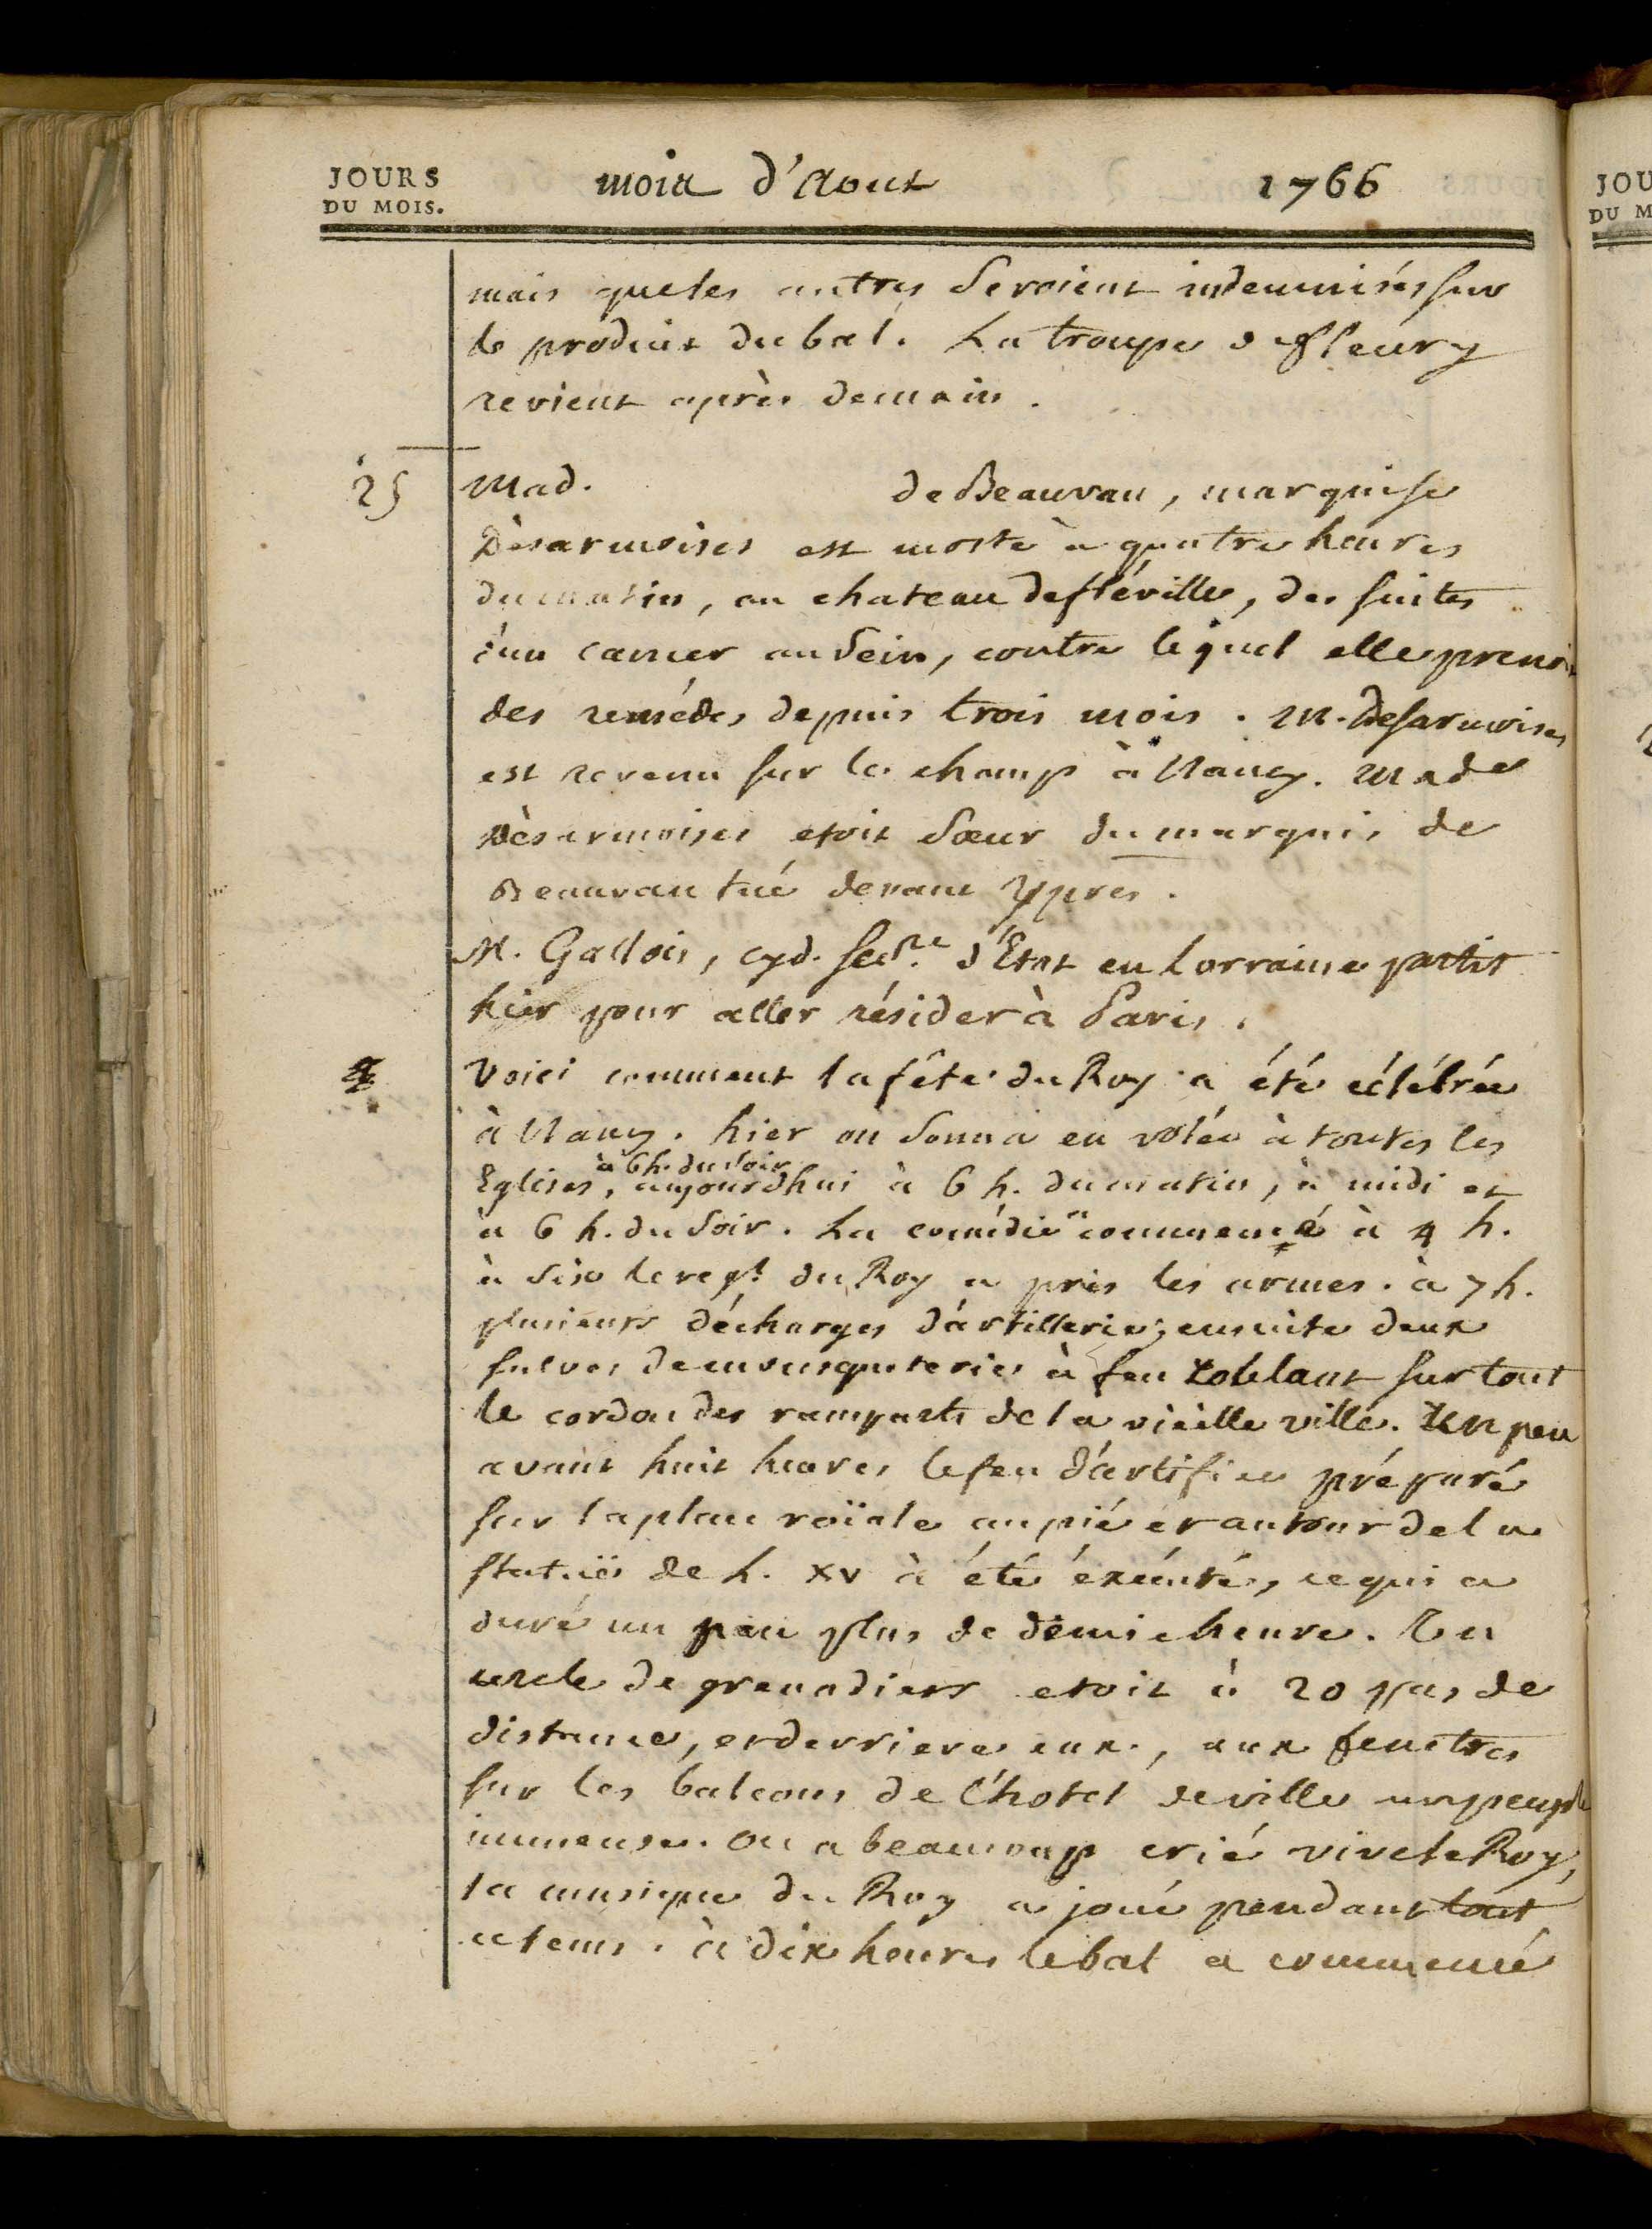 JOURS
DU MOIS.
mois d'Aout 1766
mais que les autres seroient indemnisés sur
le produit du bal. La troupe de fleury
revient après demain.
25 Mad. de Beauvau, marquise
Dèsarmoises est morte à quatre heures
du matin, au chateau de fléville, des suites
d'un cancer au sein, contre lequel elle prenoit
des remédes depuis trois mois. M. Desarmoises
est revenu sur le champ à Nancy. Made
Dèsarmoises etoit sœur du marquis de
Beauvau tué devant Ypres.
M. Gallois, cyd. secre. d'Etat en Lorraine partit
hier pour aller résider à Paris.
Voici comment la fête du Roy a été célébrée
à Nancy. hier on sonna en volée à toutes les
à 6 h. du soir
Eglises, aujourdhui à 6 h. du matin, à midi et
à 6 h. du soir. La comédie commencé à 4 h.
à six le regt. du Roy a pris les armes. à 7 h.
plusieurs décharges d'artillerie; ensuite deux
salves de mousqueteries à feu roblant sur tout
le cordon des ramparts de la vieille ville. Un peu
avant huit heures le feu d'artifice préparé
sur la place roïale au pié et autour de la
statuë de L. XV à été éxécuté, ce qui a
duré un peu plus de demie heure. Un
cercle de grenadiers etoit à 20 pas de
distance, et derriere eux, aux fenetres
sur les balcons de l'hotel de ville un peuple
immense. On a beaucoup crié vive le Roy,
la musique du Roy a joué pendant tout
ce tems. à dix heures le bal a commencé
JOU
DU M